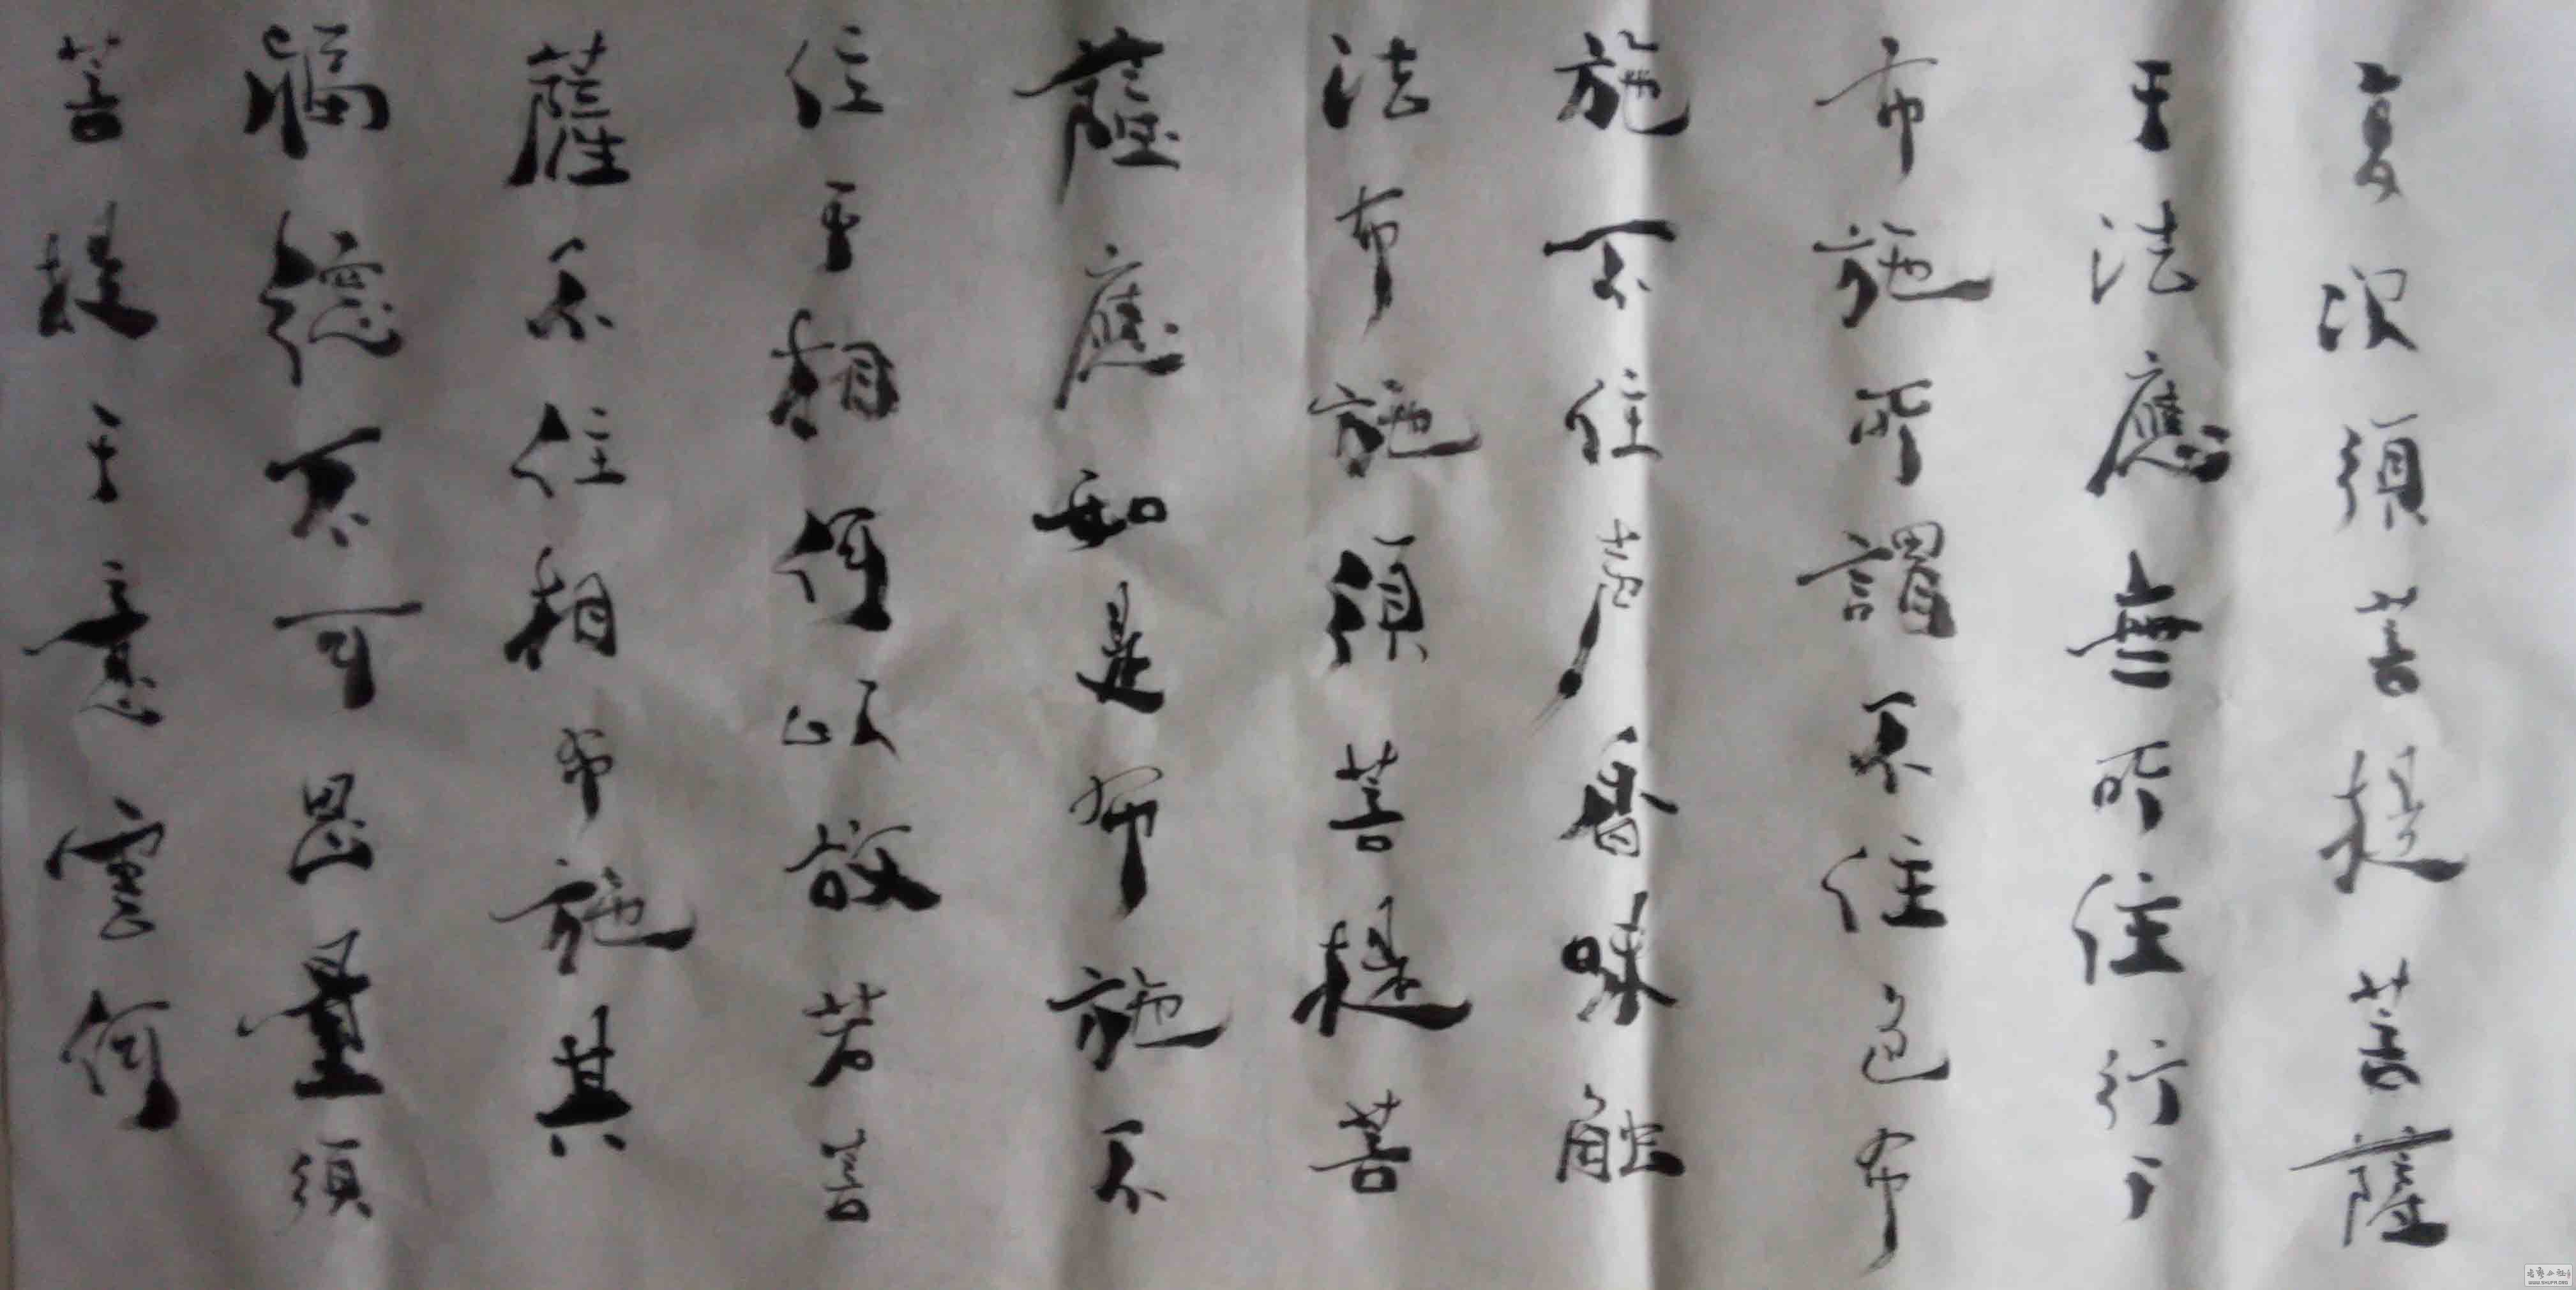 复次須菩提菩薩
于法應無所住行于
布施所謂不住色布
施不住声香味触
法布施須菩提菩
薩應如是布施不
住于相何以故若菩
薩不住相布施其
福德不可思量須
菩提于意雲何